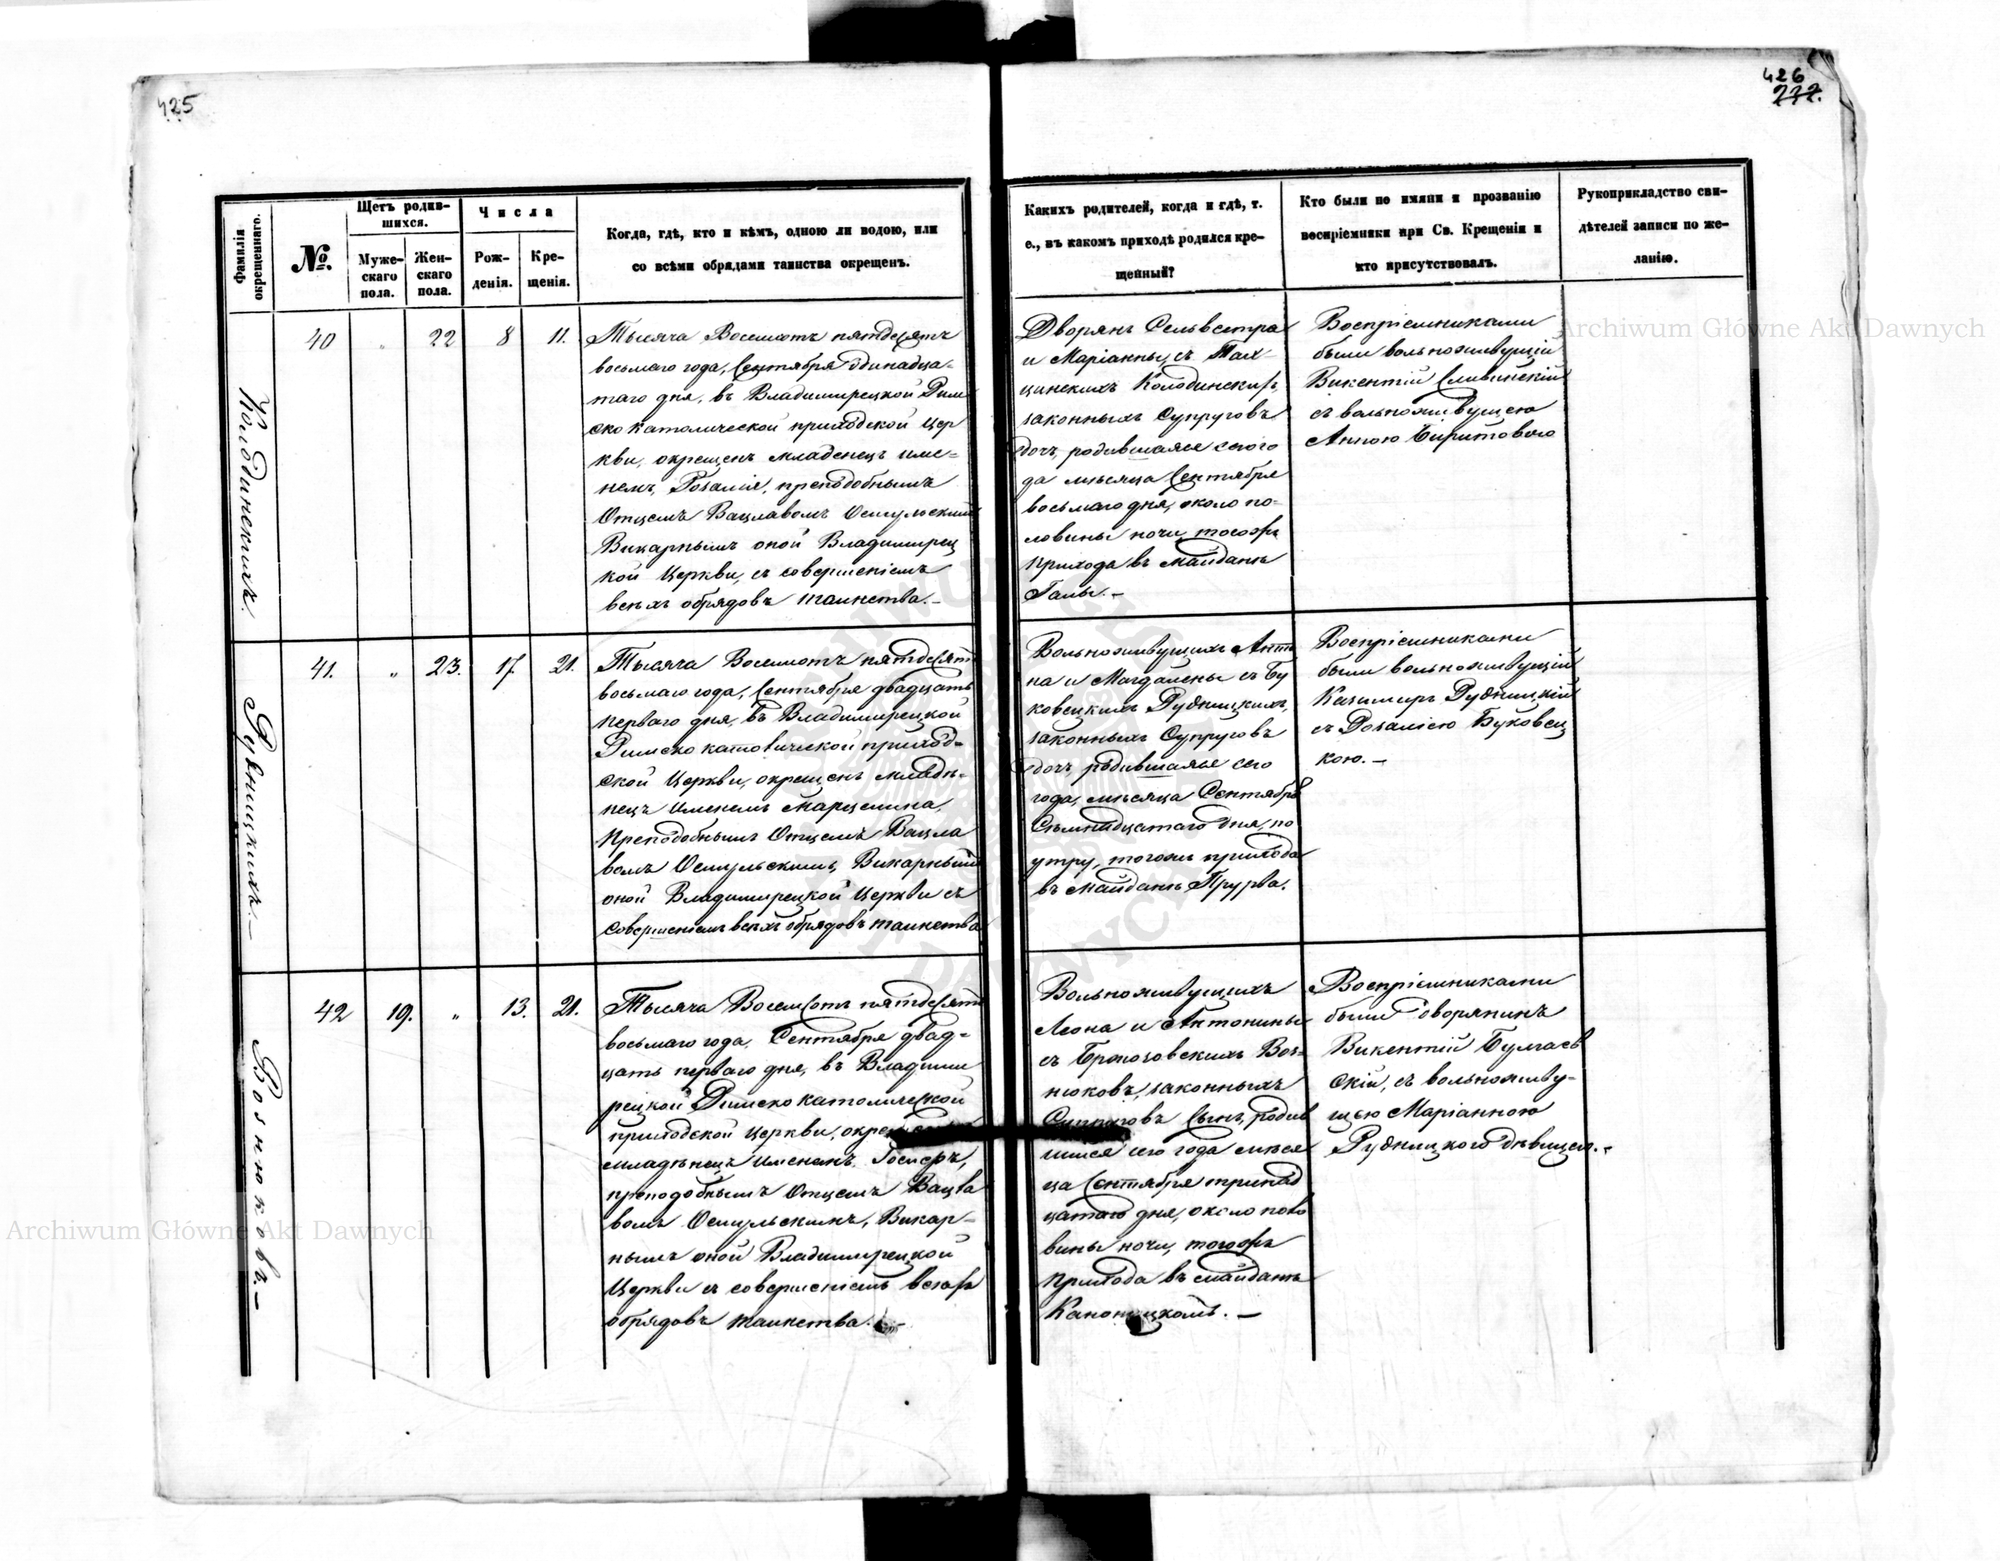 425
426
232.
Фамилія окрещеннаго.
№.
Щетъ родив-
шихся.
Муже-
скаго
пола.
Жен-
скаго
пола.
Числа
Рож-
денія.
Кре-
щенія.
Когда, гдѣ, кто и кѣмъ, одною ли водою, или
со всѣми обрядами таинства окрещенъ.
Какихъ родителей, когда и гдѣ, т.
е., въ какомъ приходѣ родился кре-
щенный?
Кто были по имяни и прозванію
воспріемники при Св. Крещеніи и
кто присутствовалъ.
Рукоприкладство сви-
дѣтелей записи по же-
ланію.
Колодинскихъ.
40
"
22
8
11.
Тысяча Восемсотъ пятдесятъ
восьмаго года, Сентября одинадца-
таго дня, въ Владимирецкой Рим
ско католической приходской Цер
кви, окрещенъ младенецъ име-
немъ, Розалія, преподобнымъ
Отцемъ Вацлавомъ Осмульскимъ
Викарнымъ оной Владимирец
кой Церкви, съ совершеніемъ
всѣхъ обрядовъ таинства.-
Дворянъ Сельвестра
и Маріанны съ
Колодинскихъ,
законныхъ Супруговъ
дочь, родившаяся сего го
да мѣсяца Сентября
восьмаго дня, около по-
ловины ночи, тогожъ
прихода въ Майданѣ
Галы.-
Воспріемниками
были вольноживущій
Викентій Сливинскій
съ вольноживущею
Анною
41.
"
23.
17.
21.
Рудницкихъ.-
Тысяча Восемсотъ пятдесятъ
восьмаго года, Сентября двадцать
перваго дня, въ Владимирецкой
Римско католической приход-
ской Церкви, окрещенъ младѣ-
нецъ именемъ Марцелина,
преподобнымъ Отцемъ Вацла
вомъ Осмульскимъ, Викарнымъ
оной Владимирецкой Церкви съ
совершеніемъ всѣхъ обрядовъ таинства
Вольноживущихъ Анто
на и Магдалены съ Бу
ковецкихъ Рудницкихъ,
законныхъ Супруговъ
дочь, родившаяся сего
года, мѣсяца Сентября
Семнадцатаго дня, по
утру, тогожъ прихода
въ Майданѣ Прурва.
Воспріемниками
были вольноживущій
Казимиръ Рудницкій
съ Розаліею Буковец
кою.-
Вознюковъ.-
42
19.
"
13.
21.
Тысяча Восемсотъ пятдесятъ
восьмаго года, Сентября двад-
цать перваго дня, въ Владими
рецкой Римско католической
приходской Церкви, окрещенъ
младѣнецъ именемъ,
преподобнымъ Отцемъ Вацла
вомъ Осмульскимъ, Викар-
нымъ оной Владимирецкой
Церкви съ совершеніемъ всѣхъ
обрядовъ таинства.-
Вольноживущихъ
Леона и Антонины
съ Воз-
нюковъ, законныхъ
Супруговъ Сынъ, родив
шійся сего года мѣся
ца Сентября тринад
цатаго дня, около поло
вины ночи, тогожъ
прихода въ Майданѣ
Каноницкомъ.-
Воспріемниками
были дворянинъ
Викентій
скій, съ вольножив у-
щею Маріанною
Рудницкого дѣвицею.-
Archiwum Główne Akt Dawnych
Archiwum Główne Akt Dawnych